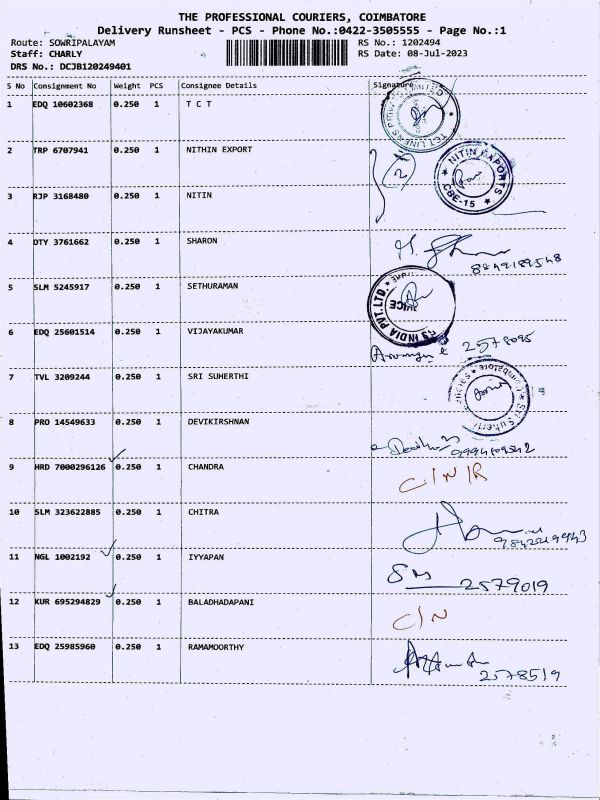 THE PROFESSIONAL COURIERS, COIMBATORE
Delivery Runsheet - PCS - Phone No.:0422-3505555 - Page No.:1
Route: SOWRIPALAYAM RS No.: 1202494
Staff: CHARLY RS Date: 08-Jul-2023
DRS No.: DCJB120249401
S No Consignment No Weight PCS Consignee Details Signature
1 EDQ 10602368 0.250 1 T C T
2 TRP 6707941 0.250 1 NITHIN EXPORT 2 NITIN EXPORTS CBE-15
3 RJP 3168480 0.250 1 NITIN
4 DTY 3761662 0.250 1 SHARON
5 SLM 5245917 0.250 1 SETHURAMAN INDIA PVT.LTD.
6 EDQ 25601514 0.250 1 VIJAYAKUMAR
7 TVL 3209244 0.250 1 SRI SUHERTHI
8 PRO 14549633 0.250 1 DEVIKIRSHNAN
9 HRD 7000296126 0.250 1 CHANDRA C/N/R
10 SLM 323622885 0.250 1 CHITRA
11 NGL 1002192 0.250 1 IYYAPAN 2579019
12 KUR 695294829 0.250 1 BALADHADAPANI C/N
13 EDQ 25985960 0.250 1 RAMAMOORTHY 2578519